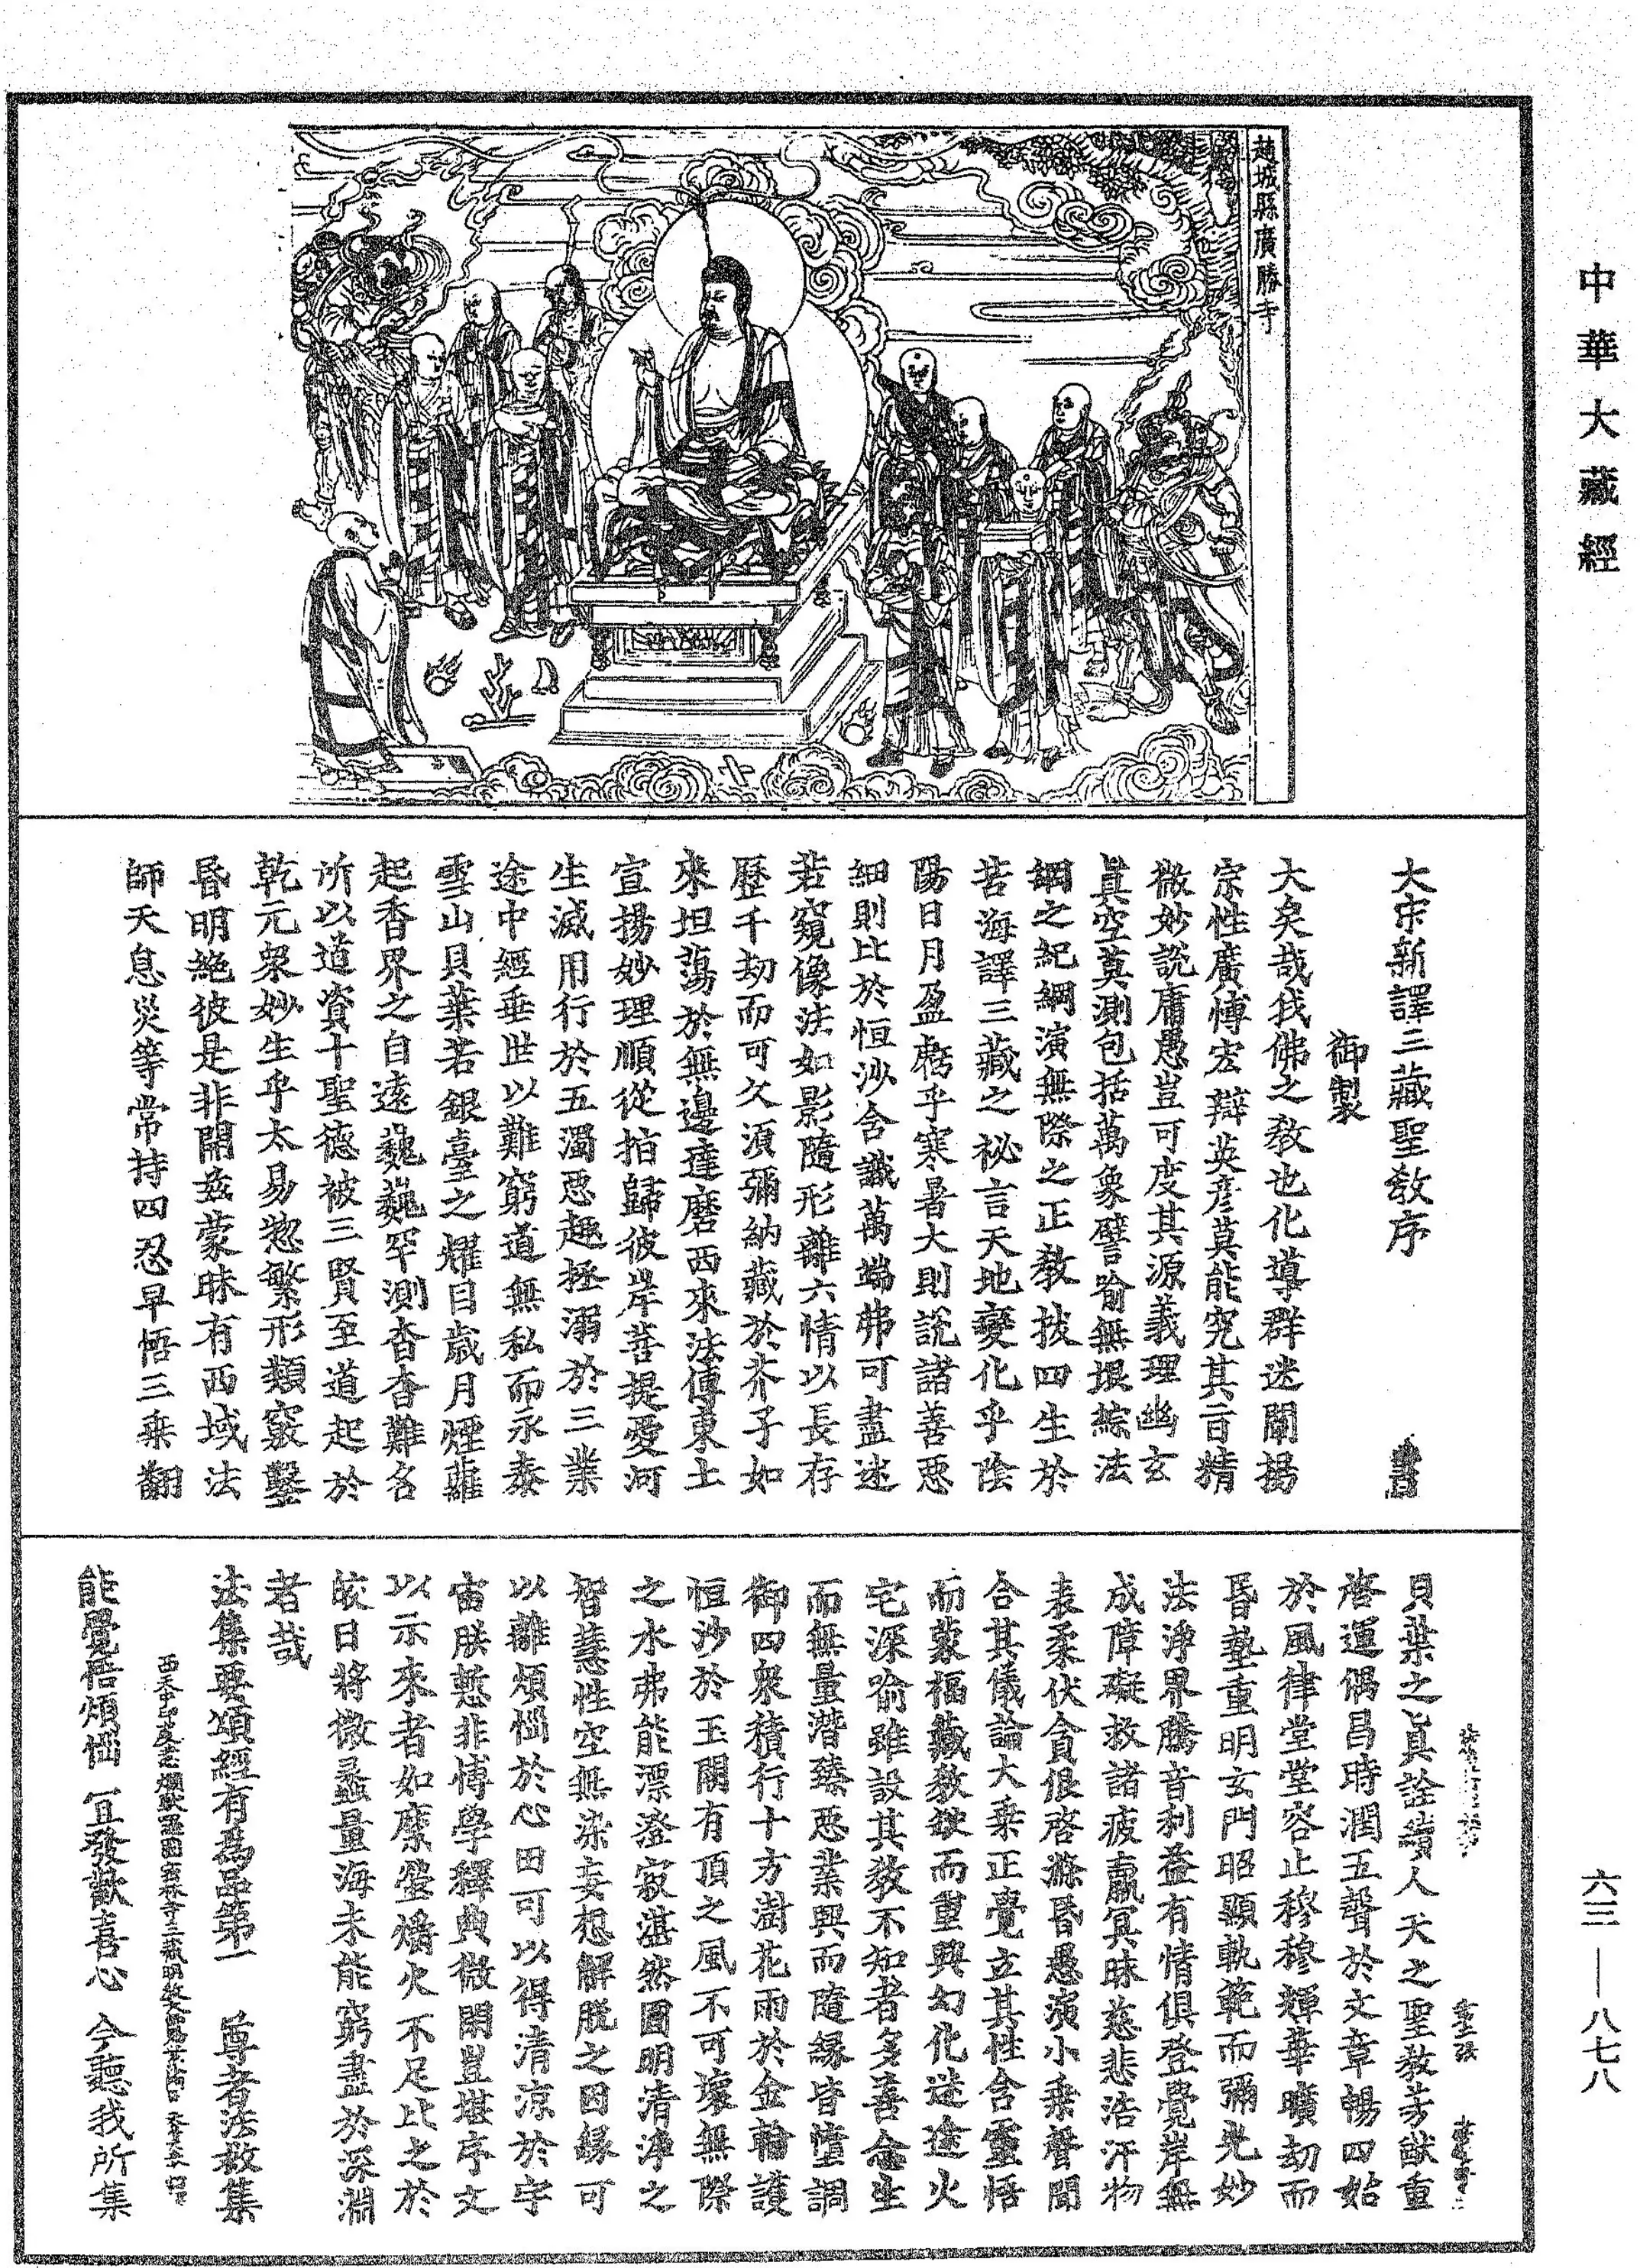 中華大藏經
趙城縣廣勝寺
大宋新譯三藏聖教序
御製
大矣哉我佛之教也化導群迷闡揚
宗性廣博宏辯英彥莫能究其旨精
微妙說庸愚豈可度其源義理幽玄
真空莫測包括萬象譬喻無垠綜法
網之紀綱演無際之正教拔四生於
苦海譯三藏之祕言天地變化乎陰
陽日月盈虧乎寒暑大則說諸善惡
細則比於恒沙含識萬端弗可盡述
若窺像法如影隨形離六情以長存
歷千劫而可久須彌納藏於芥子如
來坦蕩於無邊達磨西來法傳東土
宣揚妙理順從指歸彼岸菩提愛河
生滅用行於五濁惡趣拯溺於三業
途中經垂世以難窮道無私而永泰
雪山貝葉若銀臺之耀目歲月煙蘿
起香界之自遠巍巍罕測杳杳難名
所以道資十聖德被三賢至道起於
乾元衆妙生乎太易惣繁形類竅鑿
昏明絶彼是非開茲蒙昧有西域法
師天息災等常持四忍早悟三乗翻
貝葉之真詮續人天之聖教芳猷重
啓運偶昌時潤五聲於文章暢四始
於風律堂堂容止穆穆輝華曠劫而
昏墊重明玄門昭顯軌範而彌光妙
法淨界騰音利益有情俱登覺岸無
成障礙救諸疲羸冥昧慈悲浩汗物
表柔伏貪佷啓滌昏愚演小乗聲聞
合其儀論大乗正覺立其性含靈悟
而蒙福藏教缺而重興幻化迷途火
宅深喻雖設其教不知者多善念生
而無量潛臻惡業興而隨緣皆墮調
御四衆積行十方澍花雨於金輪護
恒沙於玉闕有頂之風不可壞無際
之水弗能漂澄寂湛然圓明清淨之
智慧性空無染妄想解脫之因緣可
以離煩惱於心田可以得清涼於宇
宙朕慙非博學釋典微閑豈堪序文
以示來者如縻螢爝火不足比之於
皎日將微蠡量海未能窮盡於深淵
者哉
法集要頌經有爲品第一　尊者法救集
能覺悟煩惱　宜發歡喜心　今聽我所集
六三—八七八